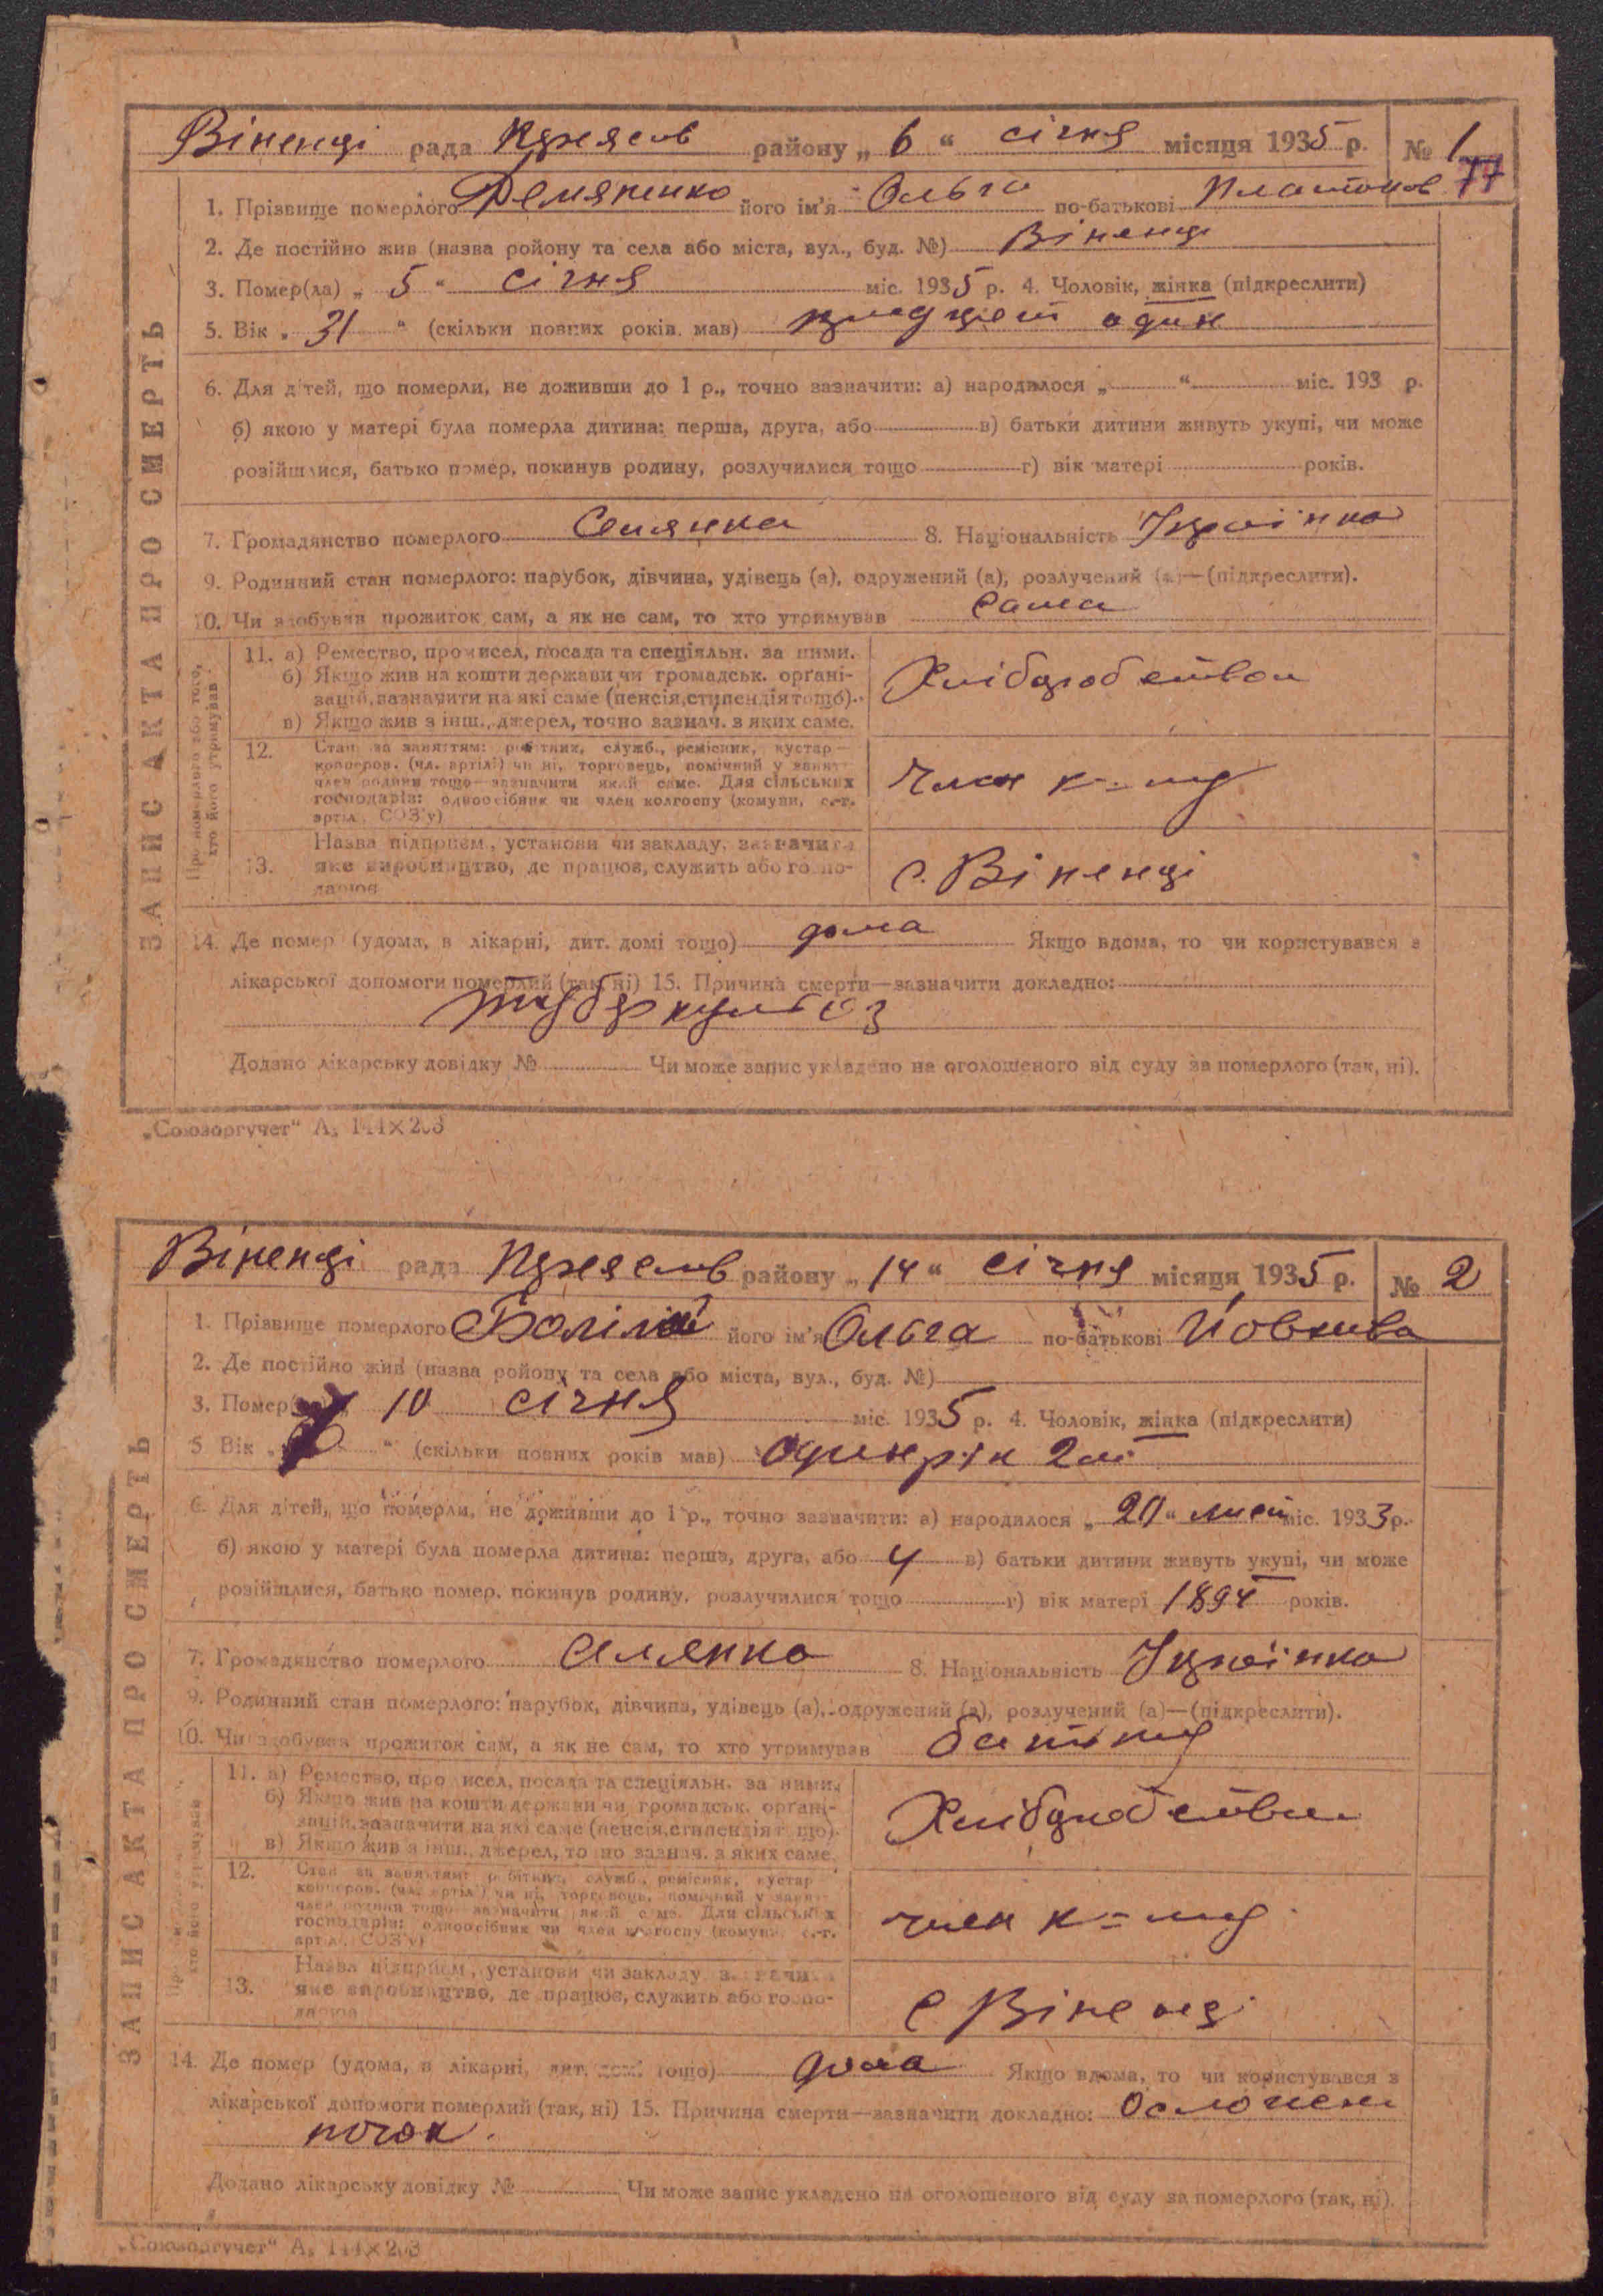 Віненці рада Переяслів району „ 6 “ січня місяця 1935 р. № 1
77
1. Прізвище померлого Демяненко його ім'я Ольга по-батькові Платонов
2. Де постійно жив (назва ройону та села або міста, вул., буд. №) Віненці
3. Помер(ла) „ 5 “ січня міс. 1935 р. 4. Чоловік, жінка (підкреслити)
5. Вік „ 31 “ (скільки повних років мав) тридцять один
6. Для дітей, що померли, не доживши до 1 р., точно зазначити: а) народилося „ “ міс. 193 р.
б) якою у матері була померла дитина: перша, друга, або в) батьки дитини живуть укупі, чи може
розійшлися, батько помер, покинув родину, розлучилися тощо г) вік матері років.
7. Громадянство померлого Селянка 8. Національність Українка
9. Родинний стан померлого: парубок, дівчина, удівець (а), одружений (а), розлучений (а)—(підкреслити).
10. Чи здобував прожиток сам, а як не сам, то хто утримував Сама
ЗАПИС АКТА ПРО СМЕРТЬ
Про померлого або того, хто його утримував
11. а) Ремество, промисел, посада та спеціяльн. за ними.
б) Якщо жив на кошти держави чи громадськ. органі-
зацій, зазначити на які саме (пенсія, стипендія тощо).
в) Якщо жив з інш., джерел, точно зазнач. з яких саме.
Хліборобством
12. Стан за заняттям: робітник, служб., ремісник, кустар—
кооперов. (чл. артілі) чи ні, торговець, помічний у занят.
член родини тощо—зазначити який саме. Для сільських
господарів: одноосібник чи член колгоспу (комуни, с.-г.
артіл., СОЗ'у)
член к=пу
13. Назва підприєм., установи чи закладу, зазначити
яке виробництво, де працює, служить або госпо-
дарює
с. Віненці
14. Де помер (удома, в лікарні, дит. домі тощо) дома Якщо вдома, то чи користувався з
лікарської допомоги померлий (так, ні) 15. Причина смерти—зазначити докладно:
туберкульоз
Додано лікарську довідку № Чи може запис укладено на оголошеного від суду за померлого (так, ні).
„Союзоргучет“ А₅ 144×203
Віненці рада Переяслів району „ 14 “ січня місяця 1935 р. № 2
1. Прізвище померлого його ім'я Ольга по-батькові
2. Де постійно жив (назва ройону та села або міста, вул., буд. №)
3. Помер 10 січня міс. 1935 р. 4. Чоловік, жінка (підкреслити)
5 Вік „ “ (скільки повних років мав) один рік 2 мі
6. Для дітей, що померли, не доживши до 1 р., точно зазначити: а) народилося „ 20 “ лист міс. 1933 р.
б) якою у матері була померла дитина: перша, друга, або 4 в) батьки дитини живуть укупі, чи може
розійшлися, батько помер, покинув родину, розлучилися тощо г) вік матері 1894 років.
7. Громадянство померлого Селянка 8. Національність Українка
9. Родинний стан померлого: парубок, дівчина, удівець (а), одружений (а), розлучений (а)—(підкреслити).
10. Чи здобував прожиток сам, а як не сам, то хто утримував батьку
ЗАПИС АКТА ПРО СМЕРТЬ
11. а) Ремество, промисел, посада та спеціяльн. за ними.
б) Якщо жив на кошти держави чи громадськ. органі-
зацій, зазначити на які саме (пенсія, стипендія тощо).
в) Якщо жив з інш., джерел, точно зазнач. з яких саме.
Хліборобством
12. Стан за заняттям: робітник, служб., ремісник, кустар
кооперов. (чл. артілі) чи ні, торговець, помічний у занят.
член родини тощо—зазначити який саме. Для сільських
господарів: одноосібник чи член колгоспу (комуни, с.-г.
артіл., СОЗ'у)
член к=пу
13. Назва підприєм., установи чи закладу, зазначити
яке виробництво, де працює, служить або госпо-
дарює
с Віненці
14. Де помер (удома, в лікарні, дит. домі тощо) дома Якщо вдома, то чи користувався з
лікарської допомоги померлий (так, ні) 15. Причина смерти—зазначити докладно:
почок.
Додано лікарську довідку № Чи може запис укладено на оголошеного від суду за померлого (так, ні).
„Союзоргучет“ А₅ 144×203